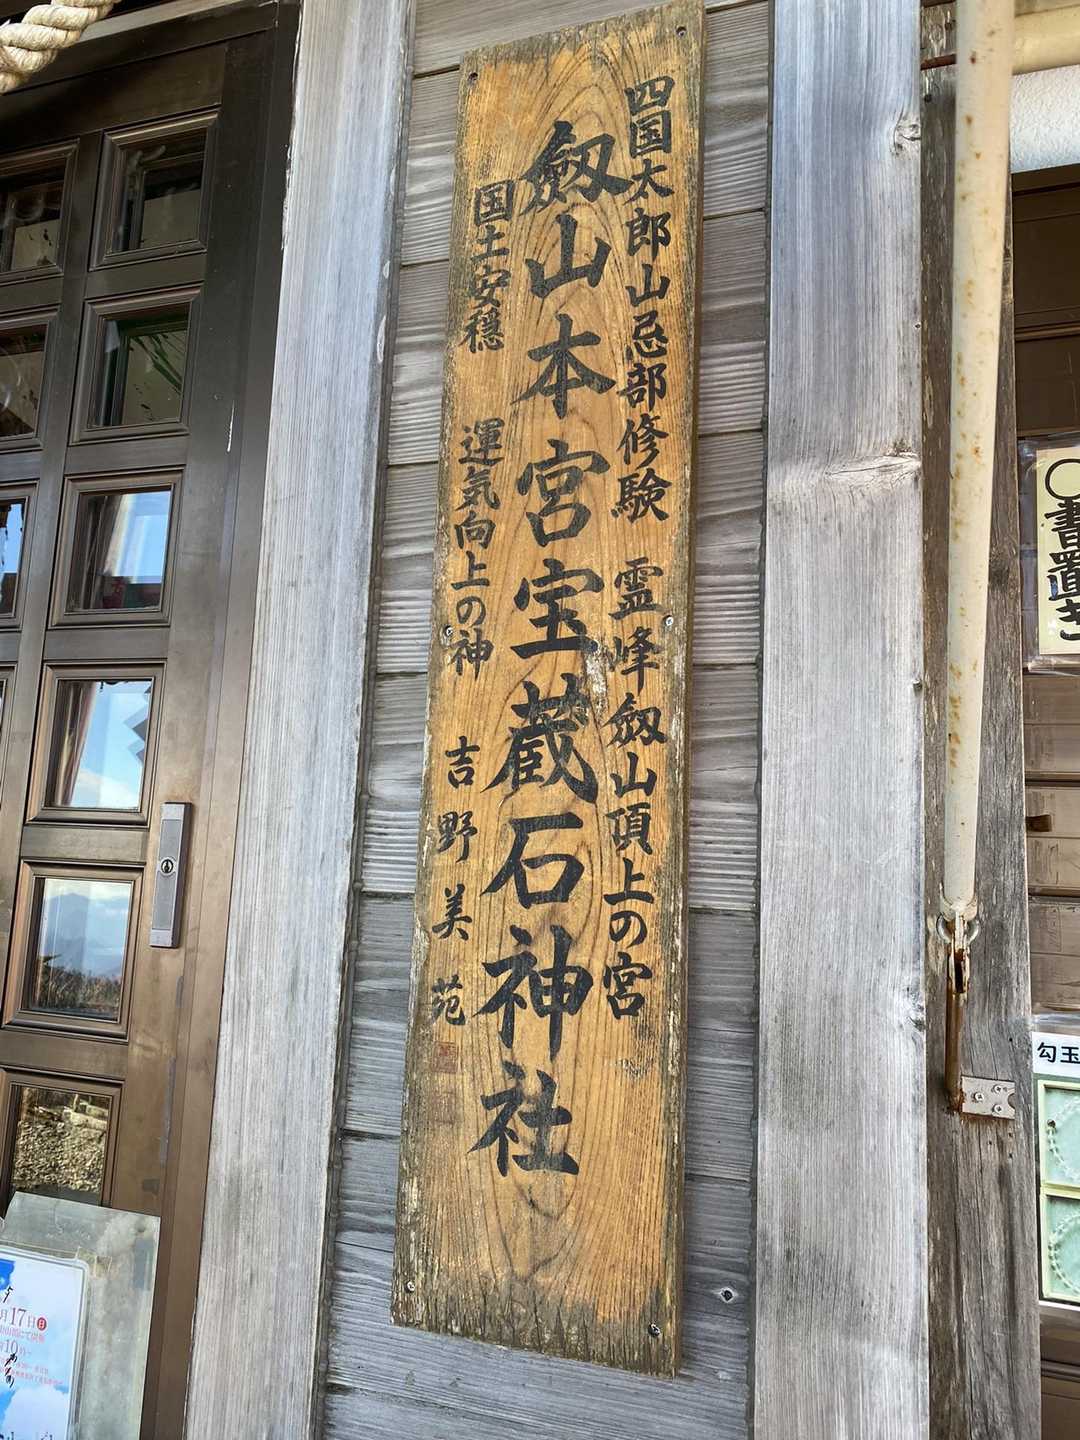 四国太郎山忌部修験 霊峰劔山頂上の宮
劔山本宮宝蔵石神社
国土安穏 運気向上の神 吉野美苑
〇書置き
勾玉
月17日(日)